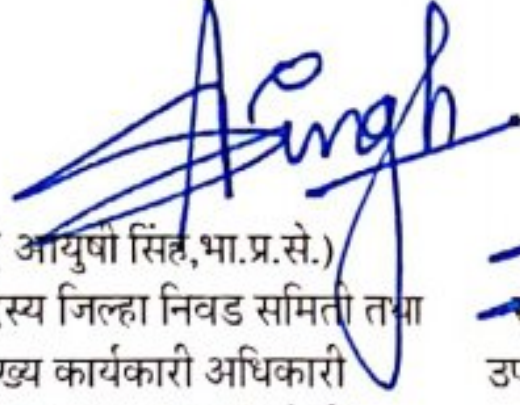 Asingh
( आयुषी सिंह,भा.प्र.से.)
स्य जिल्हा निवड समिती तथा
ख्य कार्यकारी अधिकारी उप